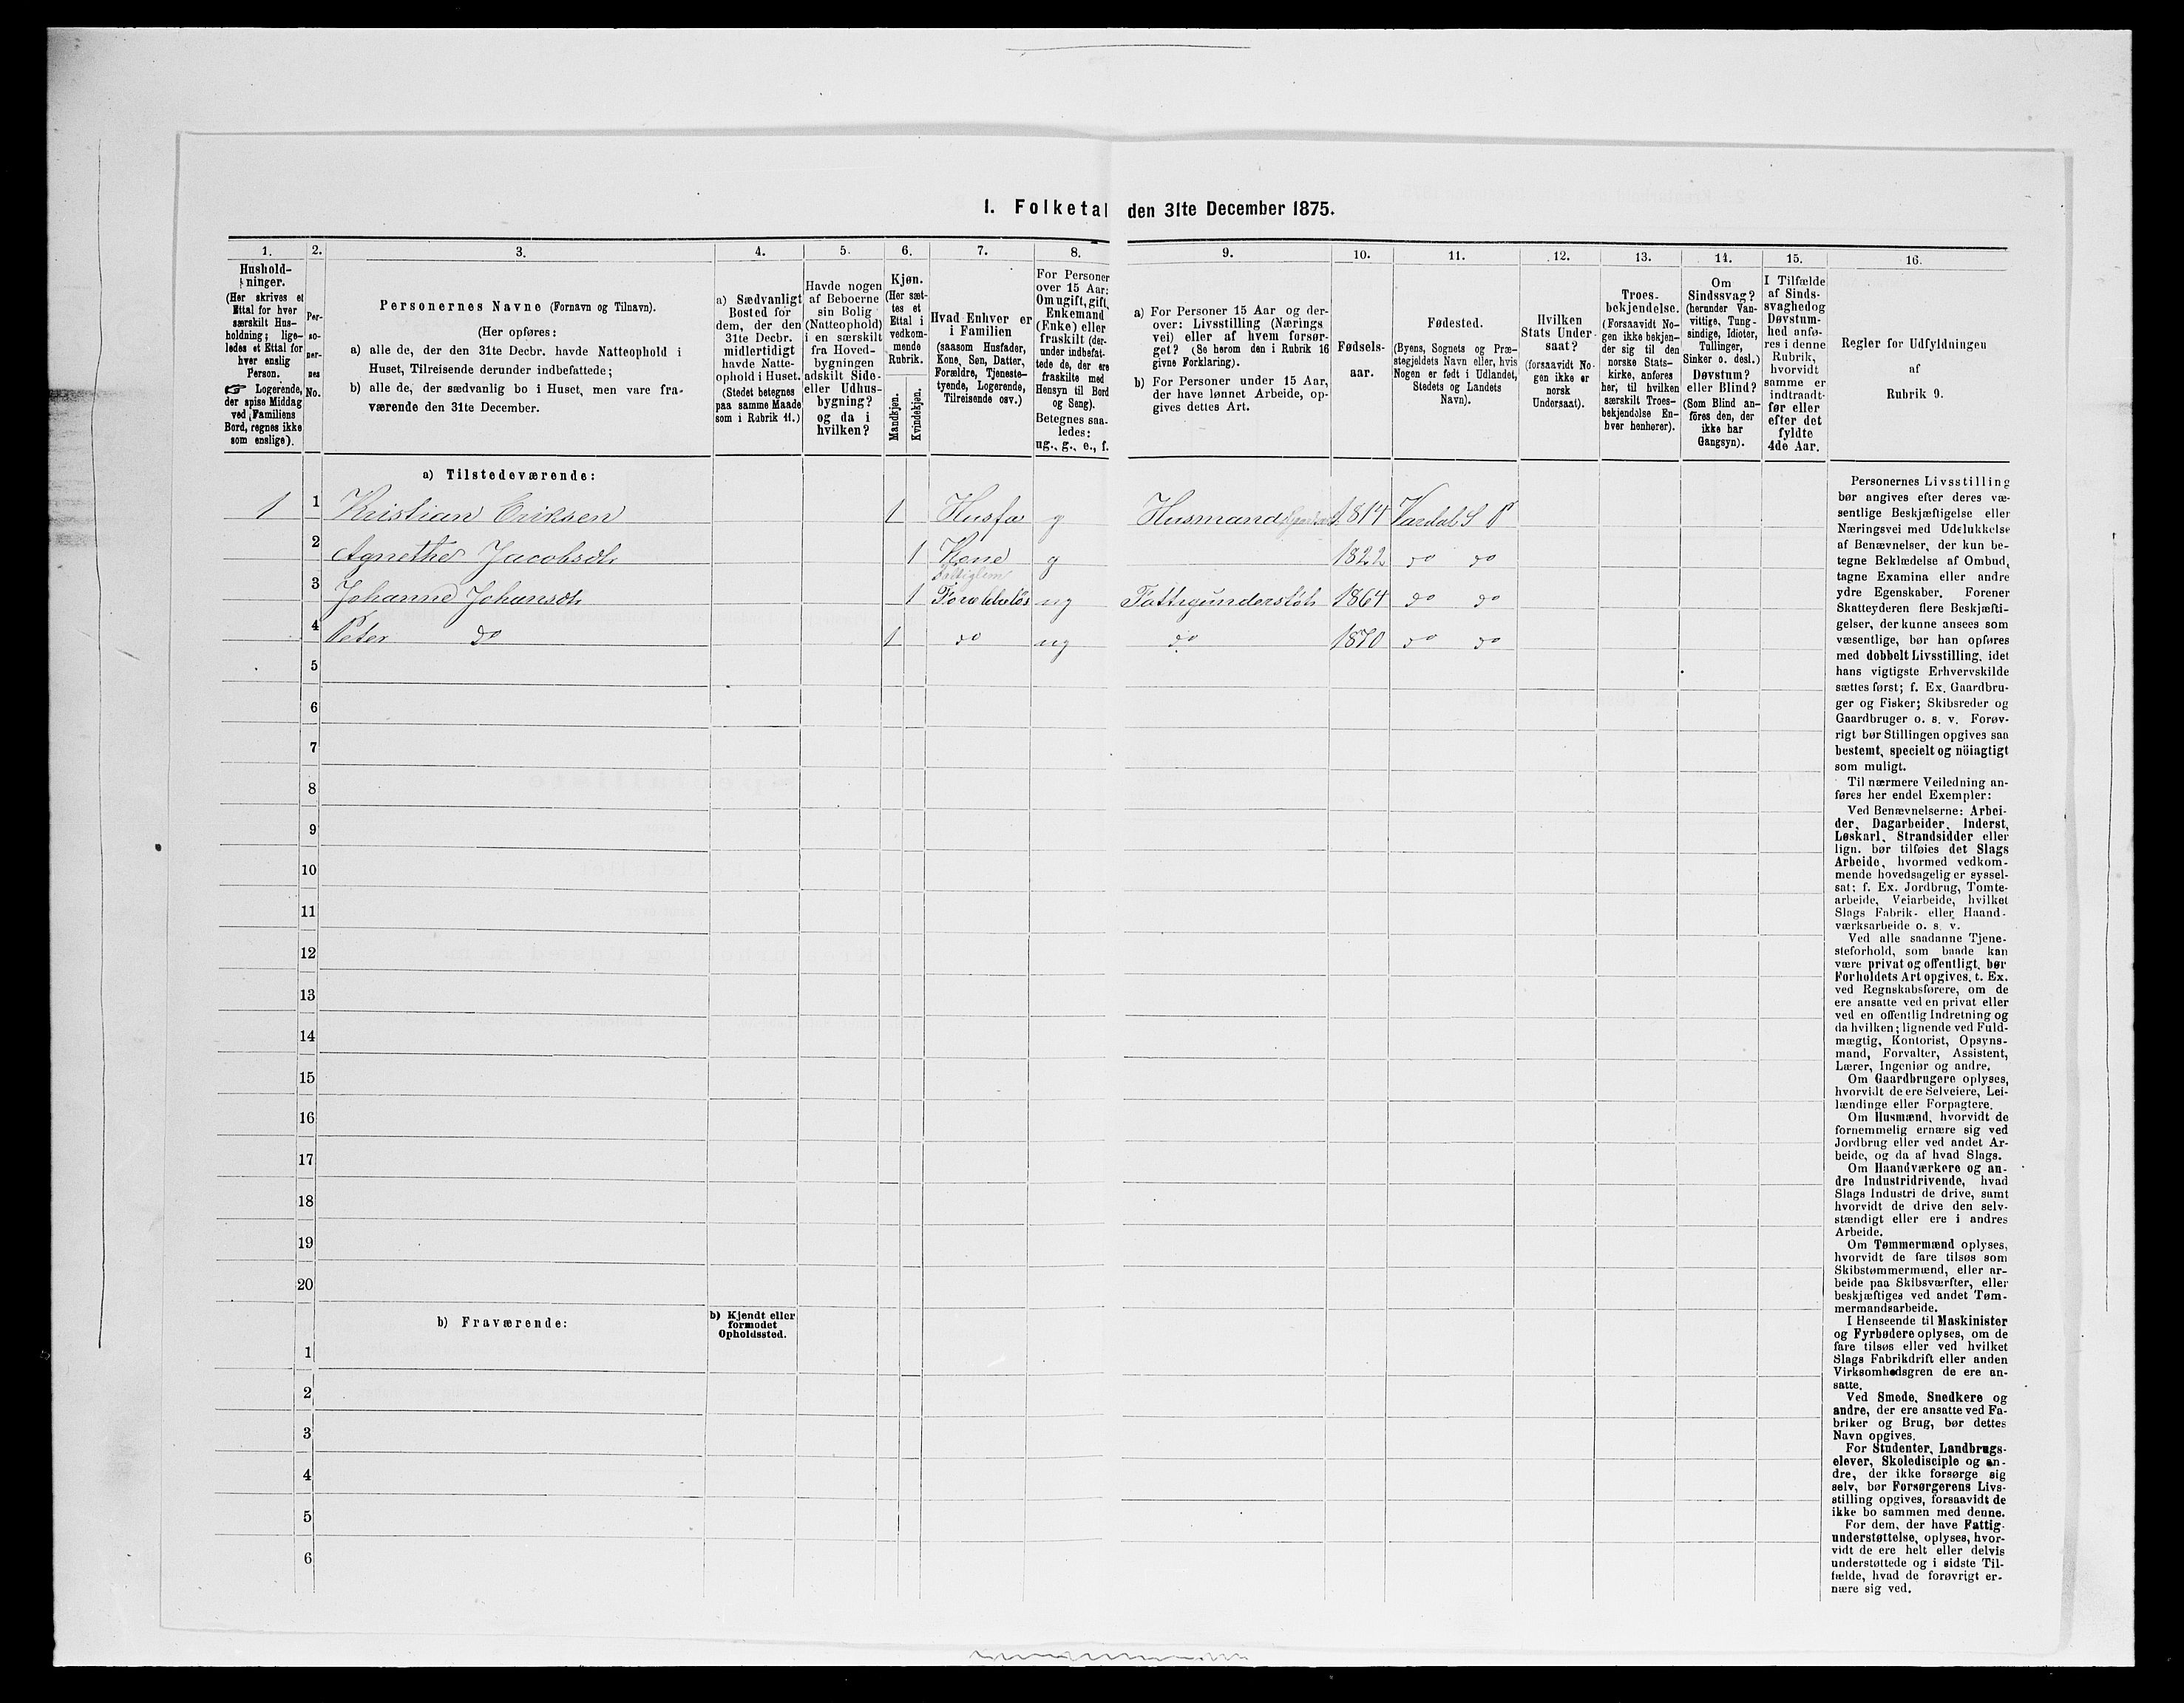 I. Folketal den 31te December 1875.
1. 2. 3. 4. 5. 6. 7. 8. 9. 10. 11. 12. 13. 14. 15. 16.
Hushold-
ninger.
(Her skrives et
Ettal for hver
særskilt Hus-
holdning; lige-
ledes et Ettal for
hver enslig
Person.
☞ Logerende,
der spise Middag
ved Familiens
Bord, regnes ikke
som enslige).
Per-
so-
ner-
nes
No.
Personernes Navne (Fornavn og Tilnavn).
(Her opføres:
a) alle de, der den 31te Decbr. havde Natteophold i
Huset, Tilreisende derunder indbefattede;
b) alle de, der sædvanlig bo i Huset, men vare fra-
værende den 31te December.
a) Sædvanligt
Bosted for
dem, der den
31te Decbr.
midlertidigt
havde Natte-
ophold i Huset.
(Stedet betegnes
paa samme Maade
som i Rubrik 11.)
Havde nogen
af Beboerne
sin Bolig
(Natteophold)
i en særskilt
fra Hoved-
bygningen
adskilt Side-
eller Udhus-
bygning?
og da i
hvilken?
Kjøn.
(Her sæt-
tes et
Ettal i
vedkom-
mende
Rubrik.
Mandkjøn.
Kvindekjøn.
Hvad Enhver er
i Familien
(saasom Husfader,
Kone, Søn, Datter,
Forældre, Tjeneste-
tyende, Logerende,
Tilreisende osv.)
For Personer
over 15 Aar:
Om ugift, gift,
Enkemand
(Enke) eller
fraskilt (der-
under indbefat-
tede de, der ere
fraskilte med
Hensyn til Bord
og Seng).
Betegnes saa-
ledes:
ug., g., e., f.
a) For Personer 15 Aar og der-
over: Livsstilling (Nærings
vei) eller af hvem forsør-
get? (Se herom den i Rubrik 16
givne Forklaring).
b) For Personer under 15 Aar,
der have lønnet Arbeide, op-
gives dettes Art.
Fødsels-
aar.
Fødested.
(Byens, Sognets og Præ-
stegjeldets Navn eller, hvis
Nogen er født i Udlandet,
Stedets og Landets
Navn).
Hvilken
Stats Under-
saat?
(forsaavidt No-
gen ikke er
norsk
Undersaat).
Troes-
bekjendelse.
(Forsaavidt No-
gen ikke bekjen-
der sig til den
norske Stats-
kirke, anføres
her, til hvilken
særskilt Troes-
bekjendelse En-
hver henhører).
Om
Sindssvag?
(herunder Van-
vittige, Tung-
sindige, Idioter,
Tullinger,
Sinker o. desl.)
Døvstum?
eller Blind?
(Som Blind an-
føres den, der
ikke har
Gangsyn).
I Tilfælde
af Sinds-
svaghed og
Døvstum-
hed anfø-
res i denne
Rubrik,
hvorvidt
samme er
indtraadt
før eller
efter det
fyldte
4de Aar.
Regler for Udfyldningen
af
Rubrik 9.
a) Tilstedeværende:
1 1 Kristian Eriksen 1 Husfa g Husmand 1814 Vardal S P
2 Agnethe Jacobsdtr 1 Kone g 1822 do do
Fattiglem
3 Johanne Johansdtr 1 Forældreløs ug Fattigunderstøt 1864 do do
4 Peter do 1 do ug do 1870 do do
5
6
7
8
9
10
11
12
13
14
15
16
17
18
19
20
b) Fraværende:
b) Kjendt eller
formodet
Opholdssted.
1
2
3
4
5
6
Personernes Livsstilling
bør angives efter deres væ-
sentlige Beskjæftigelse eller
Næringsvei med Udelukkelse
af Benævnelser, der kun be-
tegne Beklædelse af Ombud,
tagne Examina eller andre
ydre Egenskaber. Forener
Skatteyderen flere Beskjæfti-
gelser, der kunne ansees som
væsentlige, bør han opføres
med dobbelt Livsstilling, idet
hans vigtigste Erhvervskilde
sættes først; f. Ex. Gaardbru-
ger og Fisker; Skibsreder og
Gaardbruger o. s. v. Forøv-
rigt bør Stillingen opgives saa
bestemt, specielt og nöiagtigt
som muligt.
Til nærmere Veiledning an-
føres her endel Exempler:
Ved Benævnelserne: Arbei-
der, Dagarbeider, Inderst,
Løskarl, Strandsidder eller
lign. bør tilføies det Slags
Arbeide, hvormed vedkom-
mende hovedsagelig er syssel-
sat; f. Ex. Jordbrug, Tomte-
arbeide, Veiarbeide, hvilket
Slags Fabrik- eller Haand-
værksarbeide o. s. v.
Ved alle saadanne Tjene-
steforhold, som baade kan
være privat og offentligt, bør
Forholdets Art opgives, t. Ex.
ved Regnskabsførere, om de
ere ansatte ved en privat eller
ved en offentlig Indretning og
da hvilken; lignende ved Fuld-
mægtig, Kontorist, Opsyns-
mand, Forvalter, Assistent,
Lærer, Ingeniør og andre.
Om Gaardbrugere oplyses,
hvorvidt de ere Selveiere, Lei-
lændinge eller Forpagtere.
Om Husmænd, hvorvidt de
fornemmelig ernære sig ved
Jordbrug eller ved andet Ar-
beide, og da af hvad Slags.
Om Haandværkere og an-
dre Industridrivende, hvad
Slags Industri de drive, samt
hvorvidt de drive den selv-
stændigt eller ere i andres
Arbeide.
Om Tømmermænd oplyses,
hvorvidt de fare tilsøs som
Skibstømmermænd, eller ar-
beide paa Skibsværfter, eller
beskjæftiges ved andet Tøm-
mermandsarbeide.
I Henseende til Maskinister
og Fyrbødere oplyses, om de
fare tilsøs eller ved hvilket
Slags Fabrikdrift eller anden
Virksomhedsgren de ere an-
satte.
Ved Smede, Snedkere og
andre, der ere ansatte ved Fa-
briker og Brug, bør dettes
Navn opgives.
For Studenter, Landbrugs-
elever, Skoledisciple og an-
dre, der ikke forsørge sig
selv, bør Forsørgerens Livs-
stilling opgives, forsaavidt de
ikke bo sammen med denne.
For dem, der have Fattig-
understøttelse, oplyses, hvor-
vidt de ere helt eller delvis
understøttede og i sidste Til-
fælde, hvad de forøvrigt er-
nære sig ved.